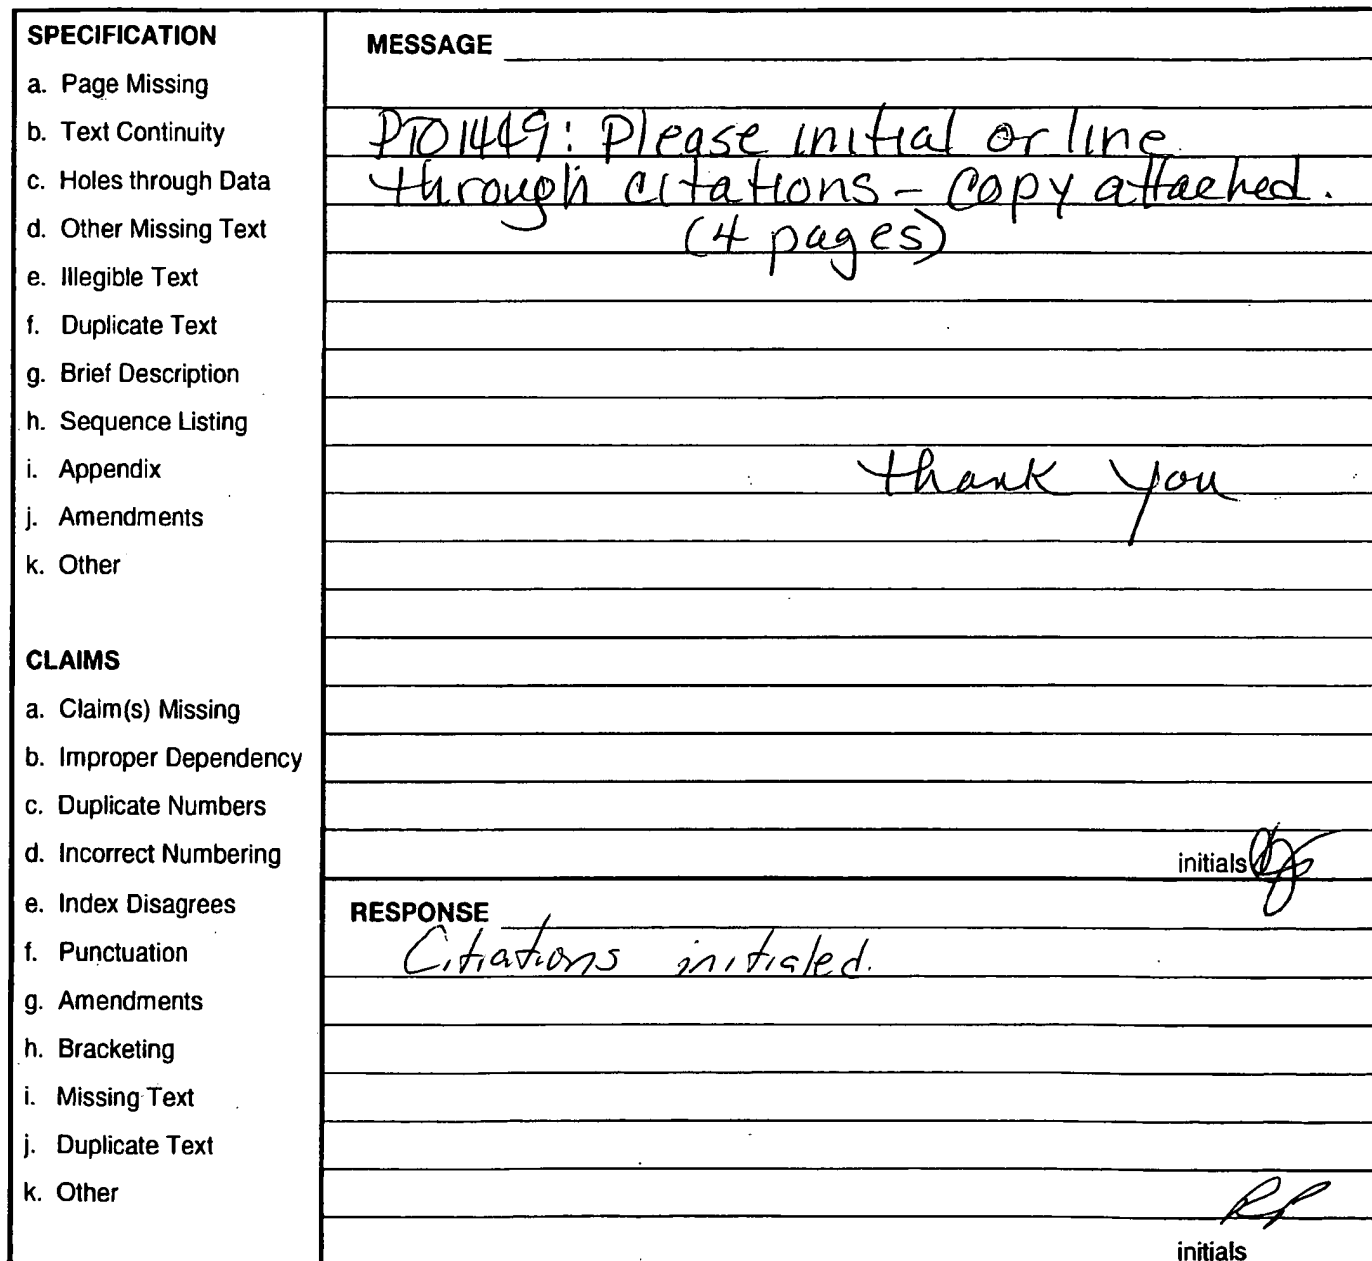 SPECIFICATION
a. Page Missing
b. Text Continuity
c. Holes through Data
d. Other Missing Text
e. Illegible Text
f. Duplicate Text
g. Brief Description
h. Sequence Listing
i. Appendix
j. Amendments
k. Other
CLAIMS
a. Claim(s) Missing
b. Improper Dependency
c. Duplicate Numbers
d. Incorrect Numbering
e. Index Disagrees
f. Punctuation
g. Amendments
h. Bracketing
i. Missing Text
j. Duplicate Text
k. Other
MESSAGE
PTO1449: Please initial or line
through citations - Copy attached.
(4 pages)
thank you
initials
RESPONSE
Citiations initialed.
initials